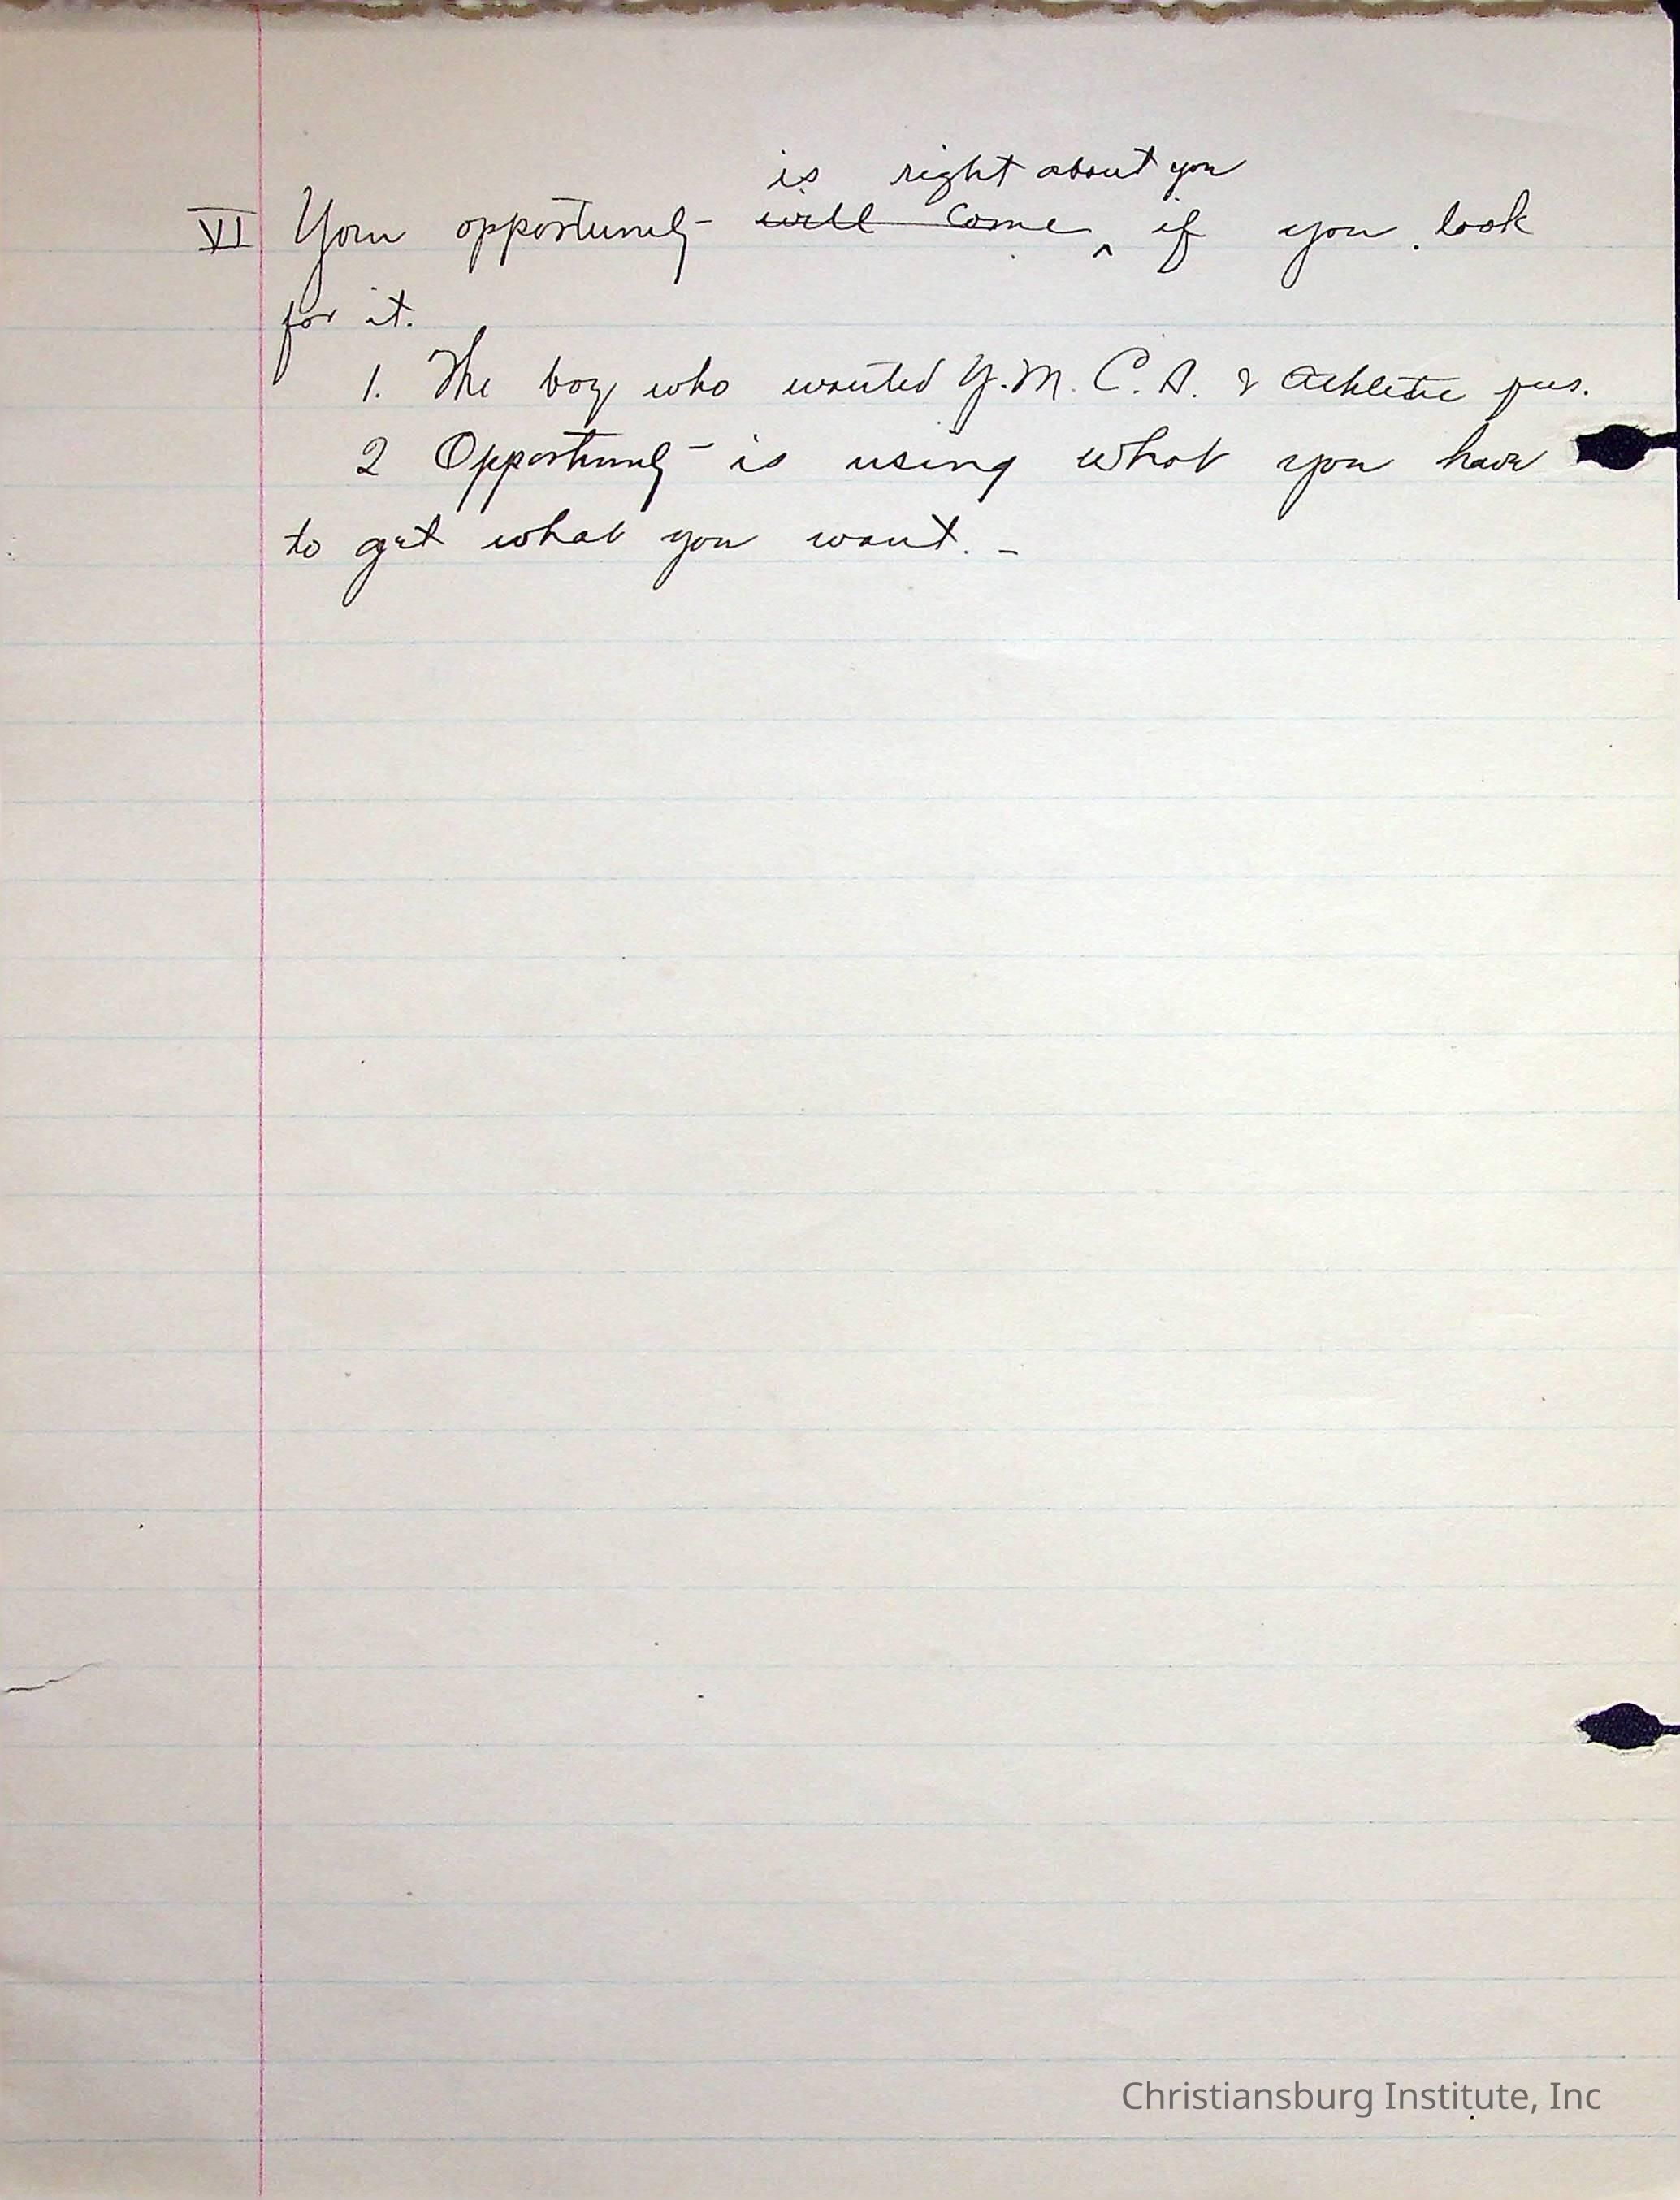 is right about you
VI Your opportunity will come ^ if you look
for it.
1. The boy who wanted Y.M.C.A. & Athletic fees.
2 Opportunity is using what you have
to get what you want. -
Christiansburg Institute, Inc